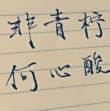 非青柠
何心酸